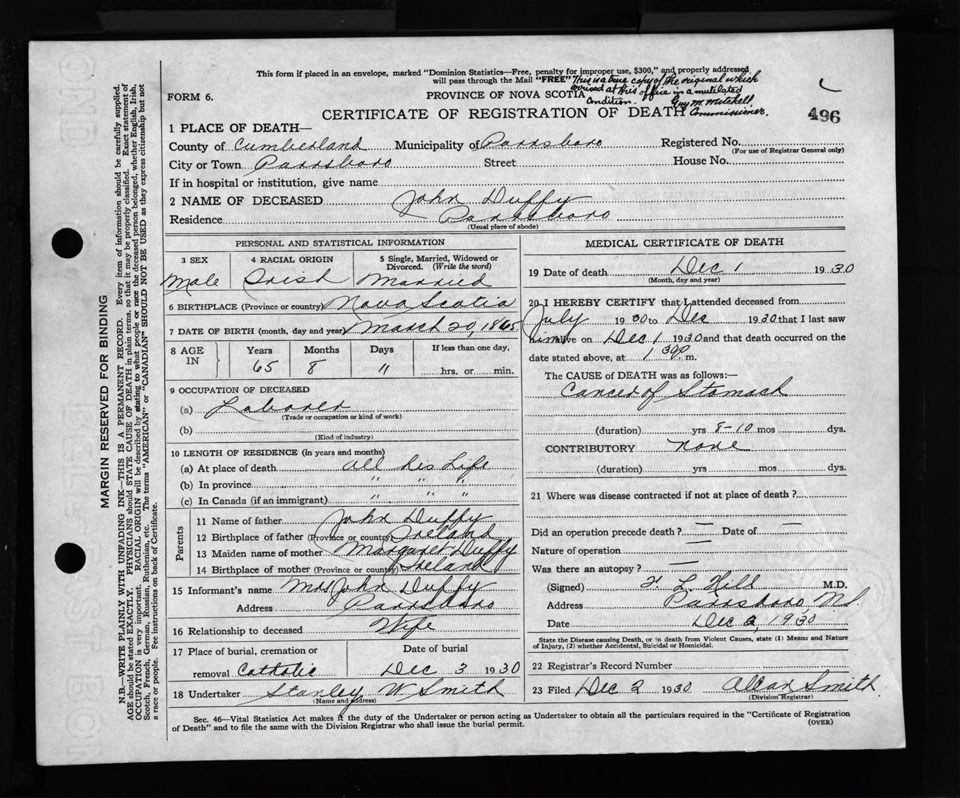 This form if placed in an envelope, marked "Dominion Statistics—Free, penalty for improper use, $300," and properly addressed
will pass through the Mail "FREE" This is a true copy of the original which
arrived at this office in a mutilated
condition. Guy M. Mitchell
Commissioner.
FORM 6.
PROVINCE OF NOVA SCOTIA
CERTIFICATE OF REGISTRATION OF DEATH
496
1 PLACE OF DEATH—
County of Cumberland Municipality of Parrsboro Registered No.
(For use of Registrar General only)
City or Town Parrsboro Street House No.
If in hospital or institution, give name
2 NAME OF DECEASED John Duffy
Residence Parrsboro
(Usual place of abode)
PERSONAL AND STATISTICAL INFORMATION
3 SEX 4 RACIAL ORIGIN 5 Single, Married, Widowed or
Divorced. (Write the word)
Male Irish Married
6 BIRTHPLACE (Province or country) Nova Scotia
7 DATE OF BIRTH (month, day and year) March 20, 1865
8 AGE IN Years Months Days If less than one day,
65 8 11 hrs. or min.
9 OCCUPATION OF DECEASED
(a) Laborer
(Trade or occupation or kind of work)
(b)
(Kind of industry)
10 LENGTH OF RESIDENCE (in years and months)
(a) At place of death all his Life
(b) In province " " "
(c) In Canada (if an immigrant) " " "
Parents
11 Name of father John Duffy
12 Birthplace of father (Province or country) Ireland
13 Maiden name of mother Margaret Duffy
14 Birthplace of mother (Province or country) Ireland
15 Informant's name Mrs John Duffy
Address Parrsboro
16 Relationship to deceased Wife
17 Place of burial, cremation or Date of burial
removal Catholic Dec 3 1930
18 Undertaker Stanley W Smith
(Name and address)
MEDICAL CERTIFICATE OF DEATH
19 Date of death Dec 1 1930
(Month, day and year)
20 I HEREBY CERTIFY that I attended deceased from
July 1930 to Dec 1930 that I last saw
him alive on Dec 1 1930 and that death occurred on the
date stated above, at 1 m.
The CAUSE of DEATH was as follows:—
Cancer of Stomach
(duration) yrs 8-10 mos dys.
CONTRIBUTORY none
(duration) yrs mos dys.
21 Where was disease contracted if not at place of death?
Did an operation precede death? — Date of —
Nature of operation —
Was there an autopsy? —
(Signed) L. Hill M.D.
Address Parrsboro, NS
Date Dec 2, 1930
State the Disease causing Death, or in death from Violent Causes, state (1) Means and Nature
of Injury, (2) whether Accidental, Suicidal or Homicidal.
22 Registrar's Record Number
23 Filed Dec 2 1930 Smith.
(Division Registrar)
Sec. 46—Vital Statistics Act makes it the duty of the Undertaker or person acting as Undertaker to obtain all the particulars required in the "Certificate of Registration
of Death" and to file the same with the Division Registrar who shall issue the burial permit. (OVER)
MARGIN RESERVED FOR BINDING
N.B.—WRITE PLAINLY WITH UNFADING INK—THIS IS A PERMANENT RECORD. Every item of information should be carefully supplied.
AGE should be stated EXACTLY. PHYSICIANS should STATE CAUSE OF DEATH in plain terms, so that it may be properly classified. Exact statement of
OCCUPATION is very important. RACIAL ORIGIN will be described by stating to what people or race the deceased person belonged, whether English, Irish,
Scotch, French, German, Russian, Ruthenian, etc. The terms "AMERICAN" or "CANADIAN" SHOULD NOT BE USED as they express citizenship but not
a race or people. See instructions on back of Certificate.